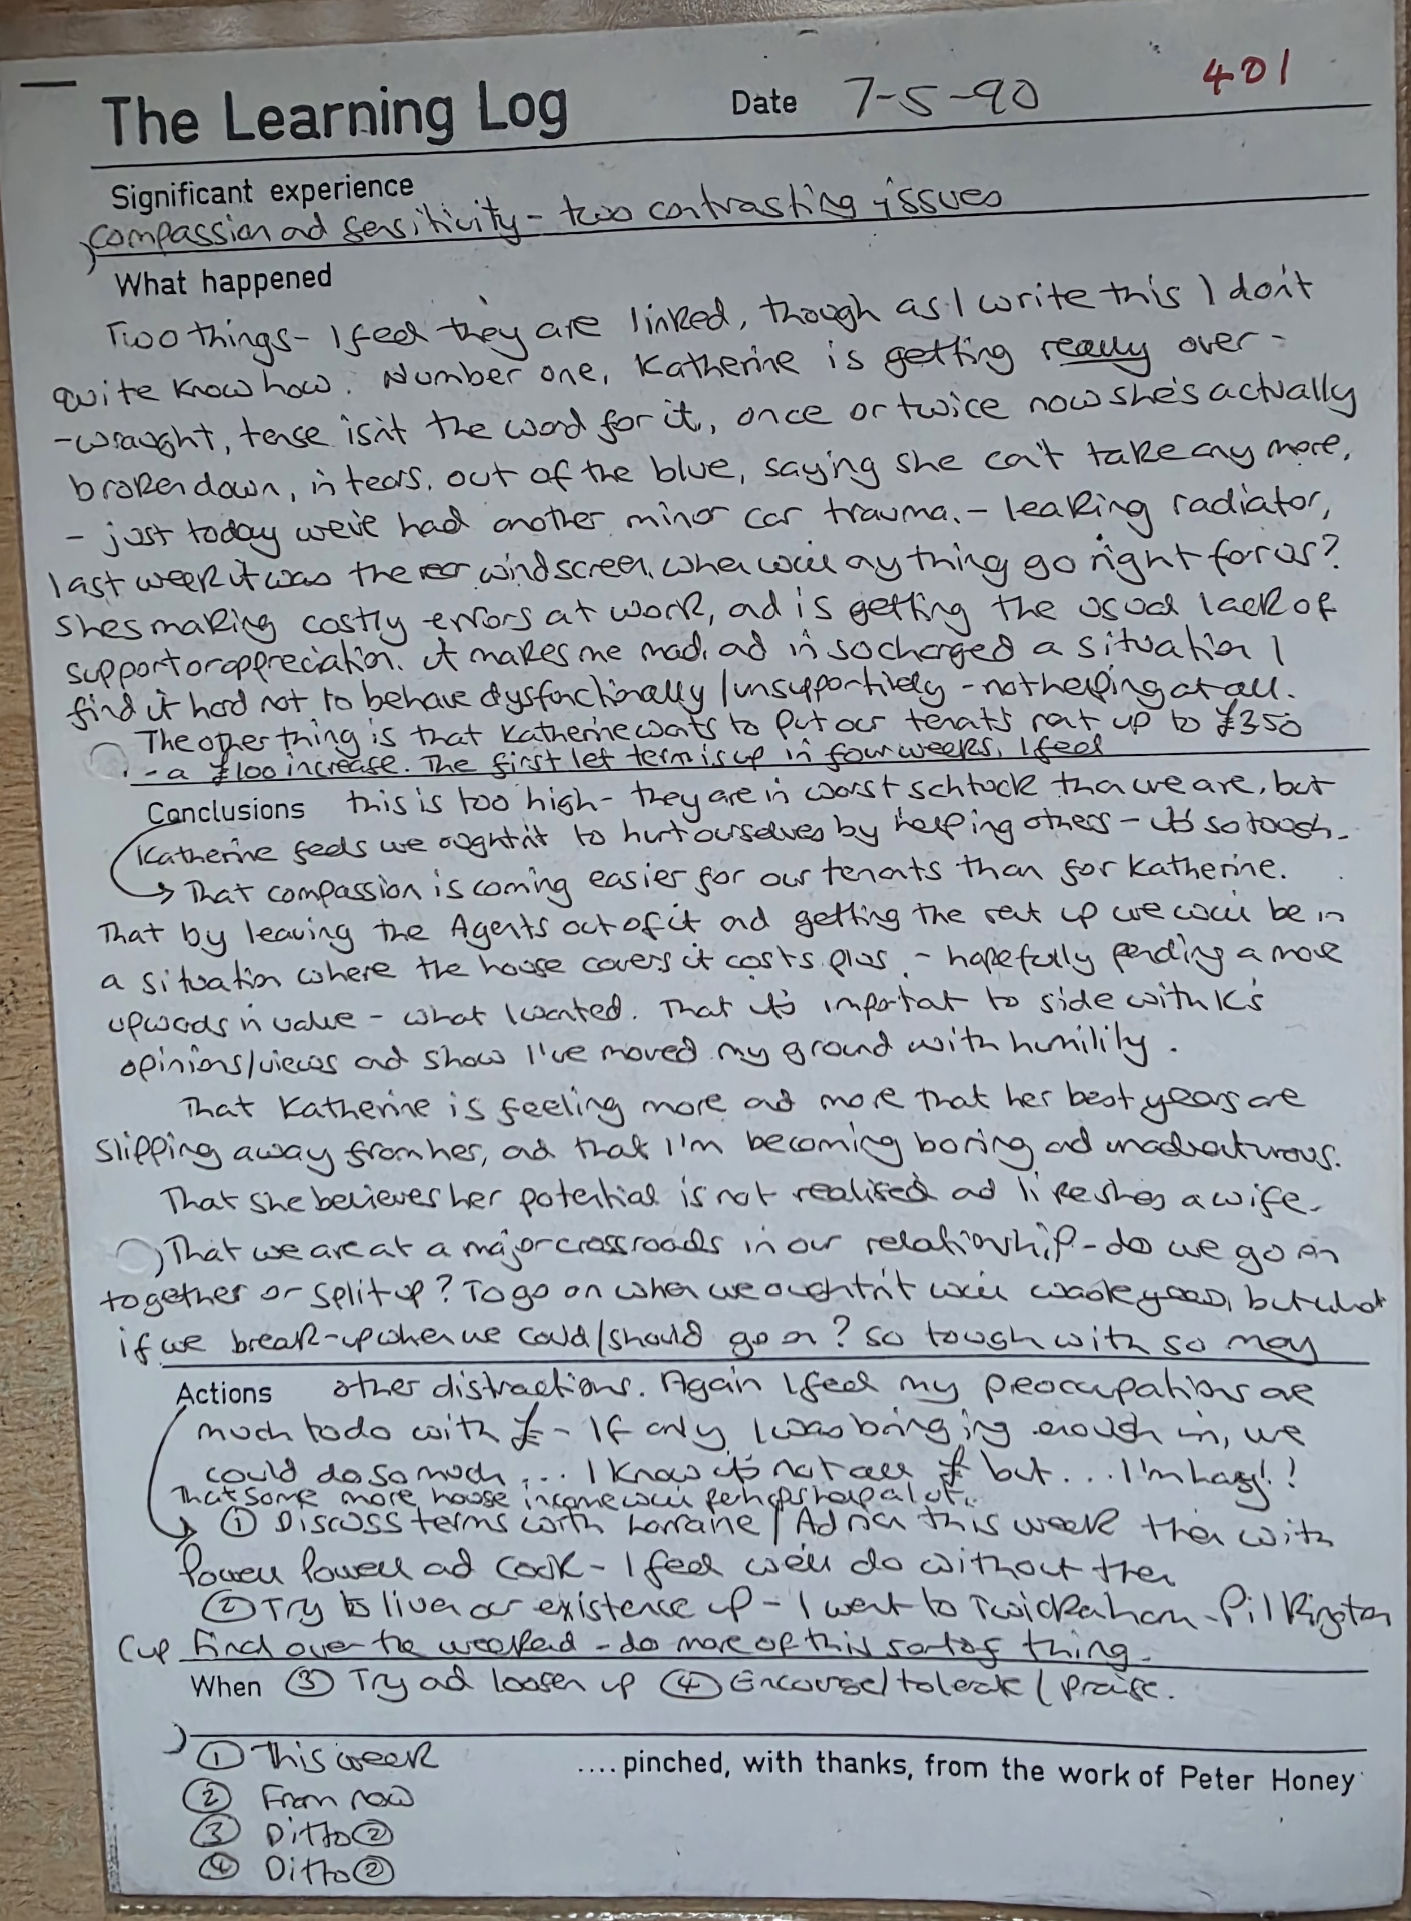 401
The Learning Log Date 7-5-90
Significant experience
Compassion ad sensitivity - two contrasting issues
What happened
Two things - I feel they are linked, though as I write this I don't
quite know how. Number one, Katherine is getting really over-
-wraught, tense isn't the word for it, once or twice now she's actually
broken down, in tears, out of the blue, saying she can't take any more,
- just today we've had another minor car trauma. - leaking radiator,
last week it was the rear windscreen, when will any thing go right for us?
Shes making costly errors at work, ad is getting the usual lack of
support or appreciation. It makes me mad, ad in so charged a situation I
find it hard not to behave dysfunctionally / unsupportively - not helping at all.
The other thing is that Katherine wants to put our tenants rent up to £350
- a £100 increase. The first let term is up in four weeks, I feel
Conclusions this is too high - they are in worst schtuck than we are, but
Katherine feels we oughtn't to hurt ourselves by helping others - it's so tough.
→ That compassion is coming easier for our tenants than for Katherine.
That by leaving the Agents out of it ad getting the rent up we will be in
a situation where the house covers it costs plus - hopefully pending a move
upwards in value - what I wanted. That it's important to side with K's
opinions/views ad show I've moved my ground with humility.
That Katherine is feeling more ad more that her best years are
slipping away from her, ad that I'm becoming boring ad unadventurous.
That she believes her potential is not realised ad like shes a wife.
That we are at a major crossroads in our relationship - do we go on
together or split up? To go on when we oughtn't will waste years, but what
if we break-up when we could/should go on? So tough with so many
Actions other distractions. Again I feel my preoccupations are
much to do with £ - If only I was bringing enough in, we
could do so much ... I know it's not all £ but ... I'm
That some more house income will perhaps help a lot.
→ ① Discuss terms with Lorraine / Adrian this week then with
Powell Powell ad Cook - I feel we'll do without them
② Try to liven our existence up - I went to Twickenham - Pilkington
Cup Final over the weekend - do more of this sort of thing.
When ③ Try ad loosen up ④ Encourage / / praise.
① This week
.... pinched, with thanks, from the work of Peter Honey
② From now
③ Ditto ②
④ Ditto ②